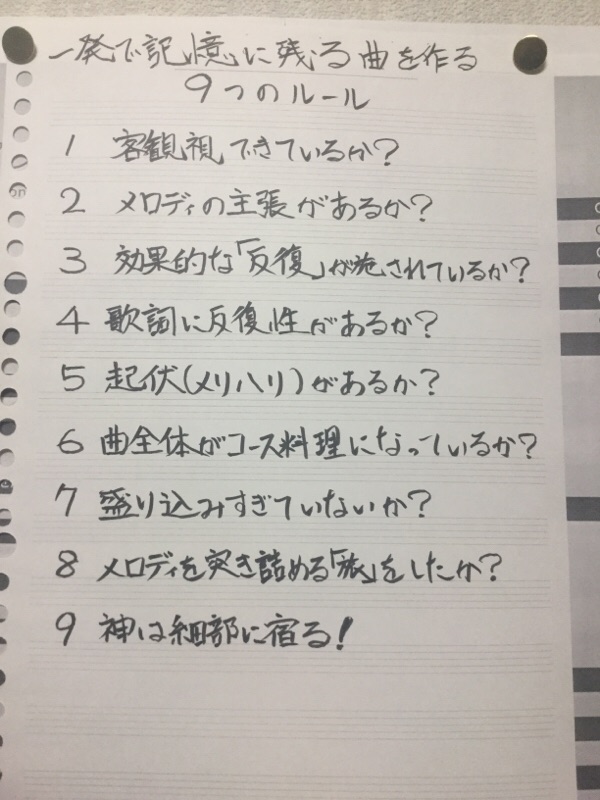 一発で記憶に残る曲を作る
9つのルール
1 客観視できているか?
2 メロディの主張があるか?
3 効果的な「反復」が施されているか?
4 歌詞に反復性があるか?
5 起伏(メリハリ)があるか?
6 曲全体がコース料理になっているか?
7 盛り込みすぎていないか?
8 メロディを突き詰める「旅」をしたか?
9 神は細部に宿る!